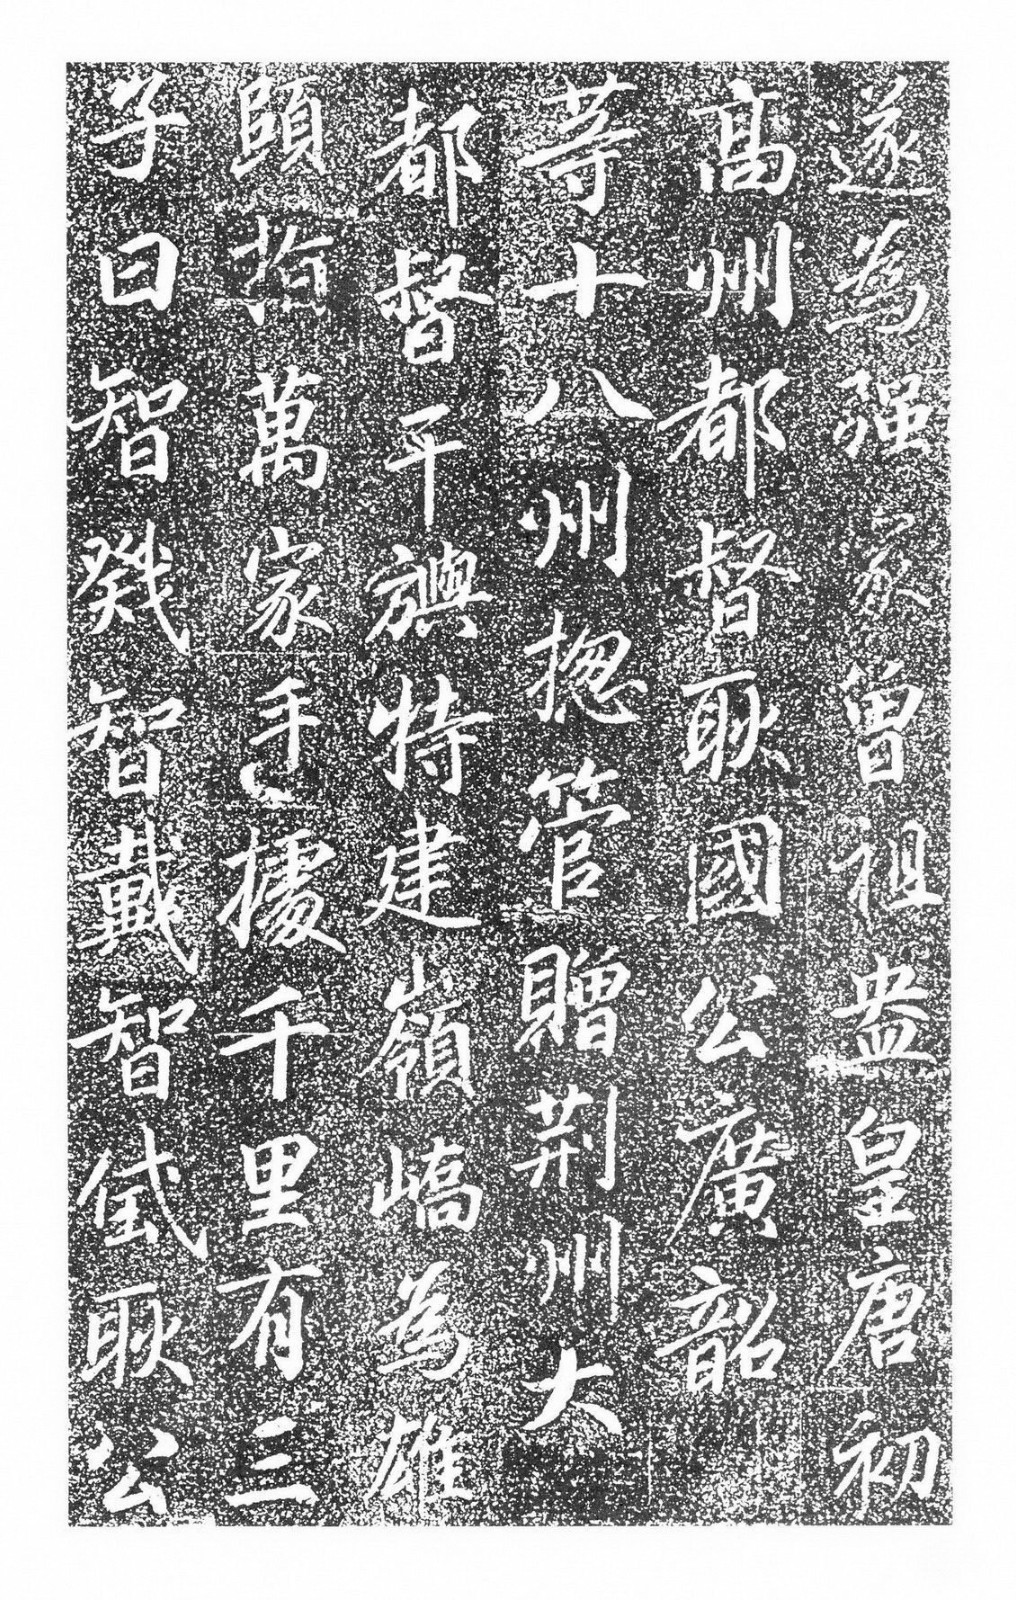 遂為強家曾祖盎皇唐初
高州都督耿國公廣韶
等十八州揔管贈荊州大
都督平嶼特建嶺嶠為雄
頤指萬家手據千里有三
子曰智戣智戴智玳耿公